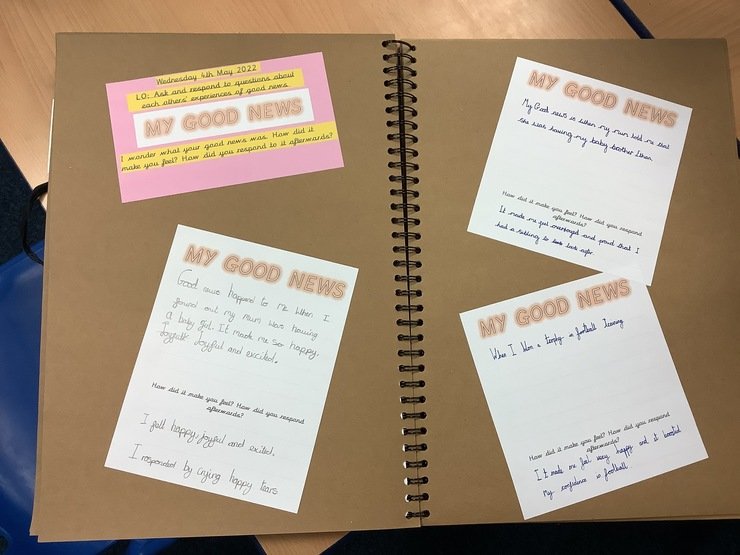 Wednesday 4th May 2022
LO: Ask and respond to questions about
each others' experiences of good news.
MY GOOD NEWS
I wonder what your good news was. How did it
make you feel? How did you respond to it afterwards?
MY GOOD NEWS
Good news happend to me when I
found out my mum was having
a baby girl. It made me so happy,
Joyfull. Joyful and excited.
How did it make you feel? How did you respond
afterwards?
I felt happy, joyful and exited.
I responded by crying happy tears
MY GOOD NEWS
My Good news is when my mum told me that
she was having my baby brother Ethan.
How did it make you feel? How did you respond
afterwards?
It made me feel overjoyed and proud that I
had a sibling to look after.
MY GOOD NEWS
When I Won a trophy in football Training
How did it make you feel? How did you respond
afterwards?
It made me feel very happy and it boosted
My confidence in football.